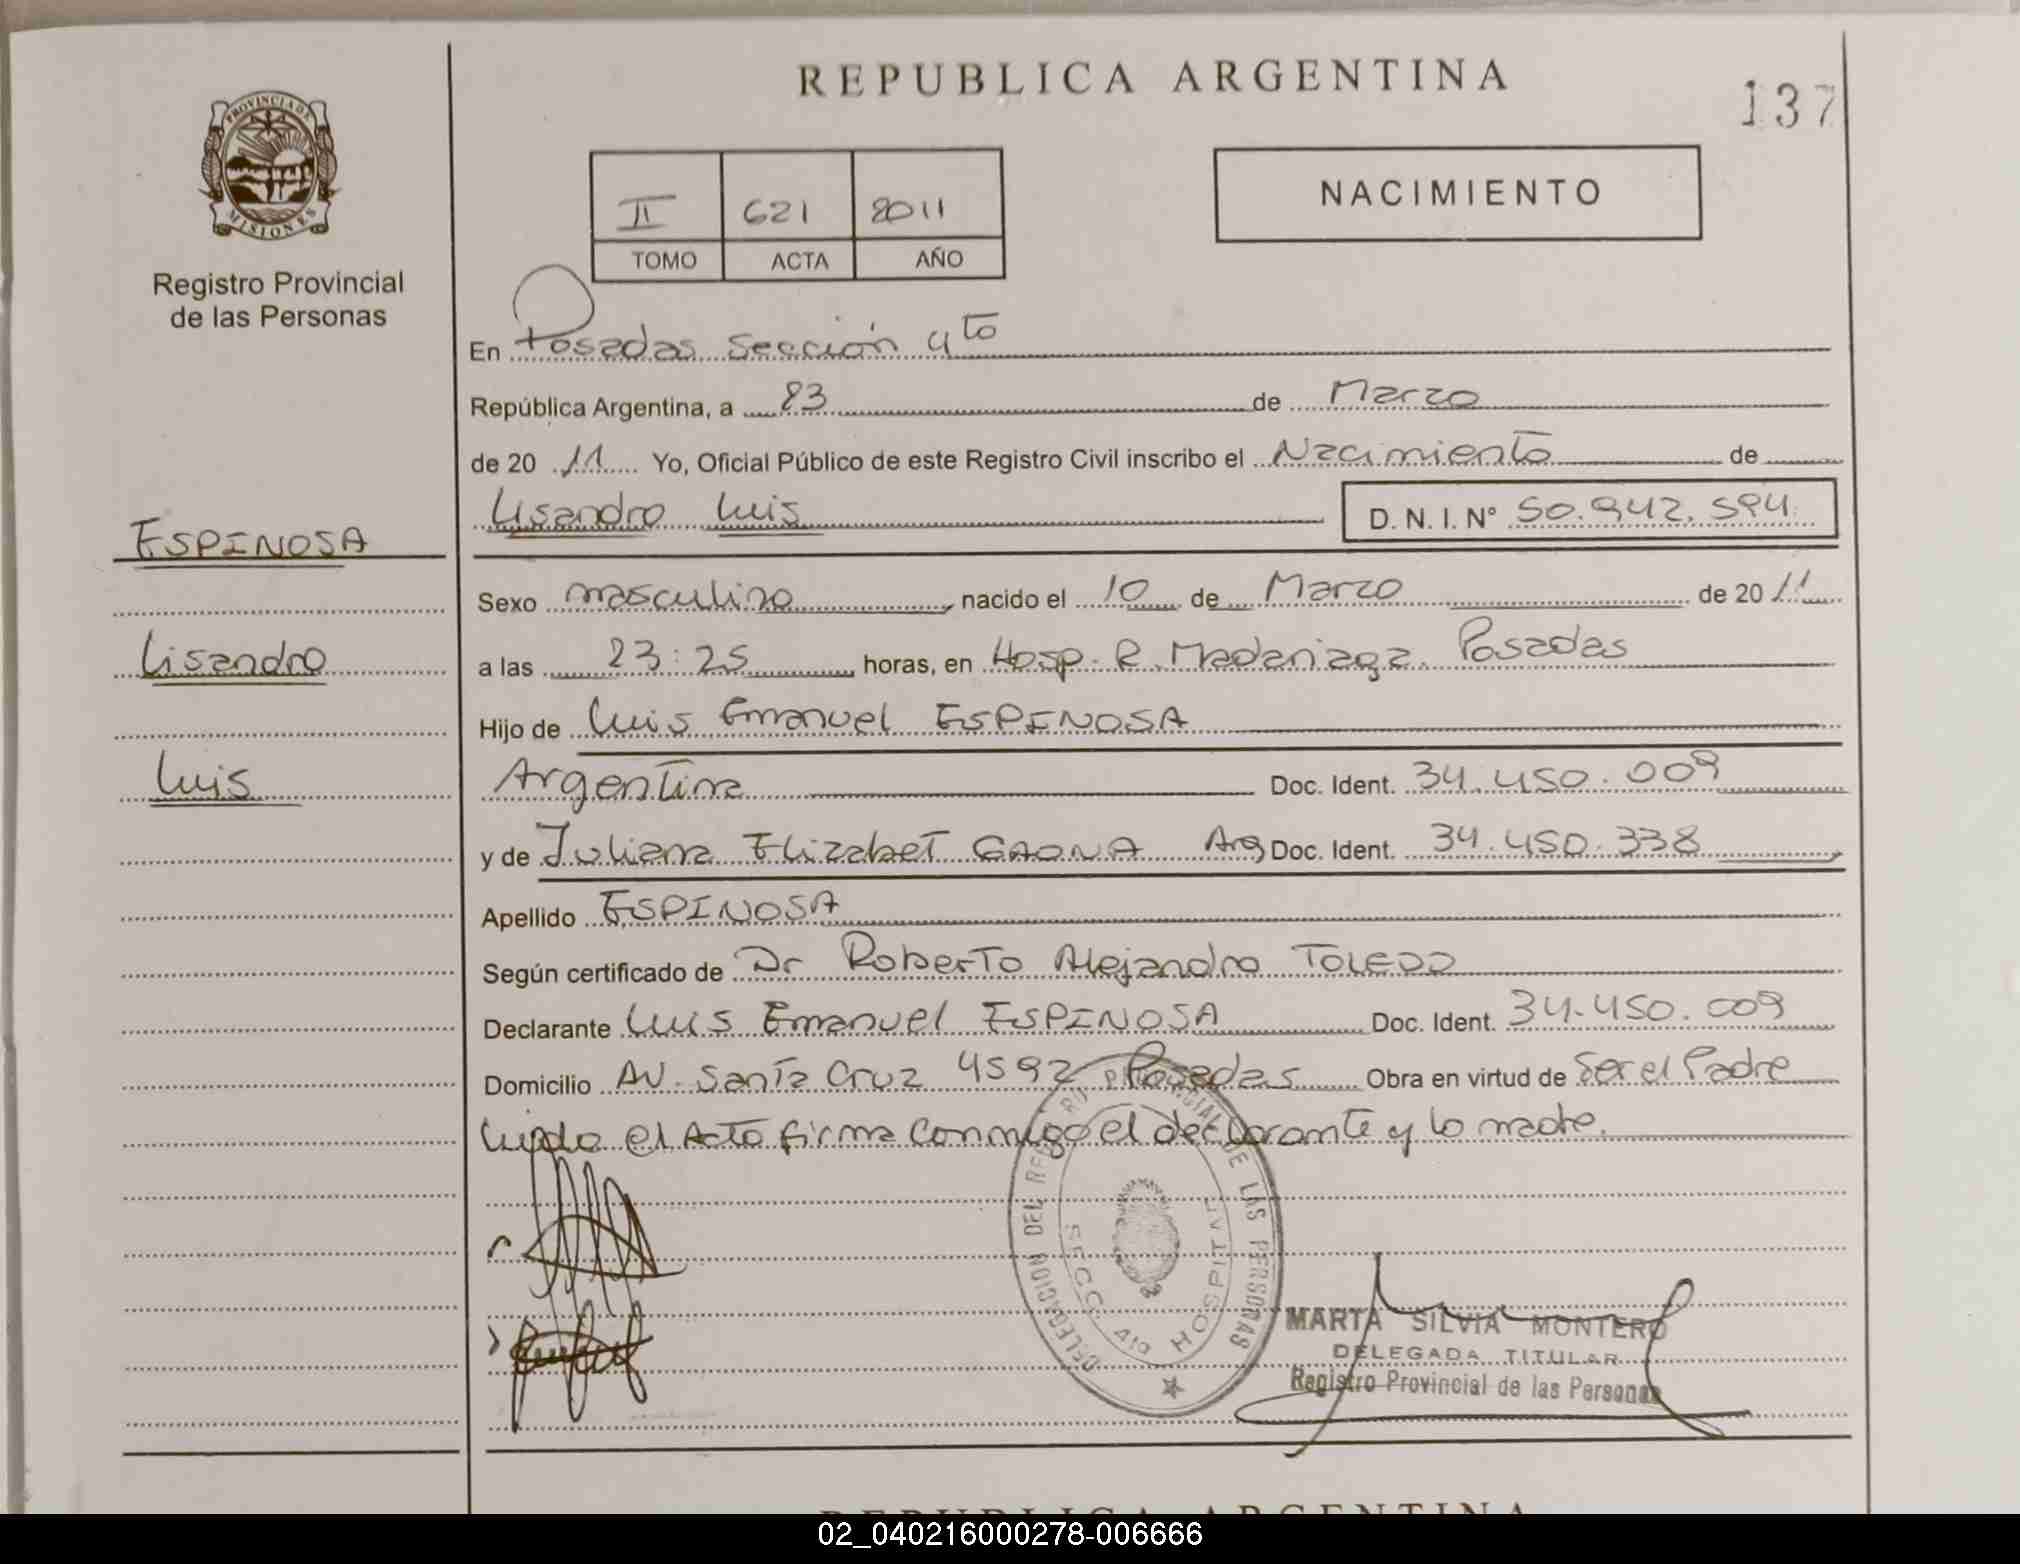 REPUBLICA ARGENTINA
137
PROVINCIA DE
MISIONES
Registro Provincial
de las Personas
II 621 2011
TOMO ACTA AÑO
NACIMIENTO
En Posadas Sección 4to
República Argentina, a 23 de Marzo
de 20 11 Yo, Oficial Público de este Registro Civil inscribo el Nacimiento de
Lisandro Luis D. N. I. N° 50.942.594.
ESPINOSA
Lisandro
Luis
Sexo masculino, nacido el 10 de Marzo de 20 11
a las 23:25 horas, en Hosp. R. Madariaga. Posadas
Hijo de Luis Emanuel ESPINOSA
Argentina Doc. Ident. 34.450.009
y de Juliana Elizabet GAONA Arg Doc. Ident. 34.450.338
Apellido ESPINOSA
Según certificado de Dr Roberto Alejandro TOLEDO
Declarante Luis Emanuel ESPINOSA Doc. Ident. 34.450.009
Domicilio AV. Santa Cruz 4592 Posadas Obra en virtud de Ser el Padre
Leida el Acta firma conmigo el declarante y la madre.
DELEGACION DEL REGISTRO PROVINCIAL DE LAS PERSONAS
SECC. 4ta HOSPITAL
MARTA SILVIA MONTERO
DELEGADA TITULAR
Registro Provincial de las Personas
REPUBLICA ARGENTINA
02_040216000278-006666